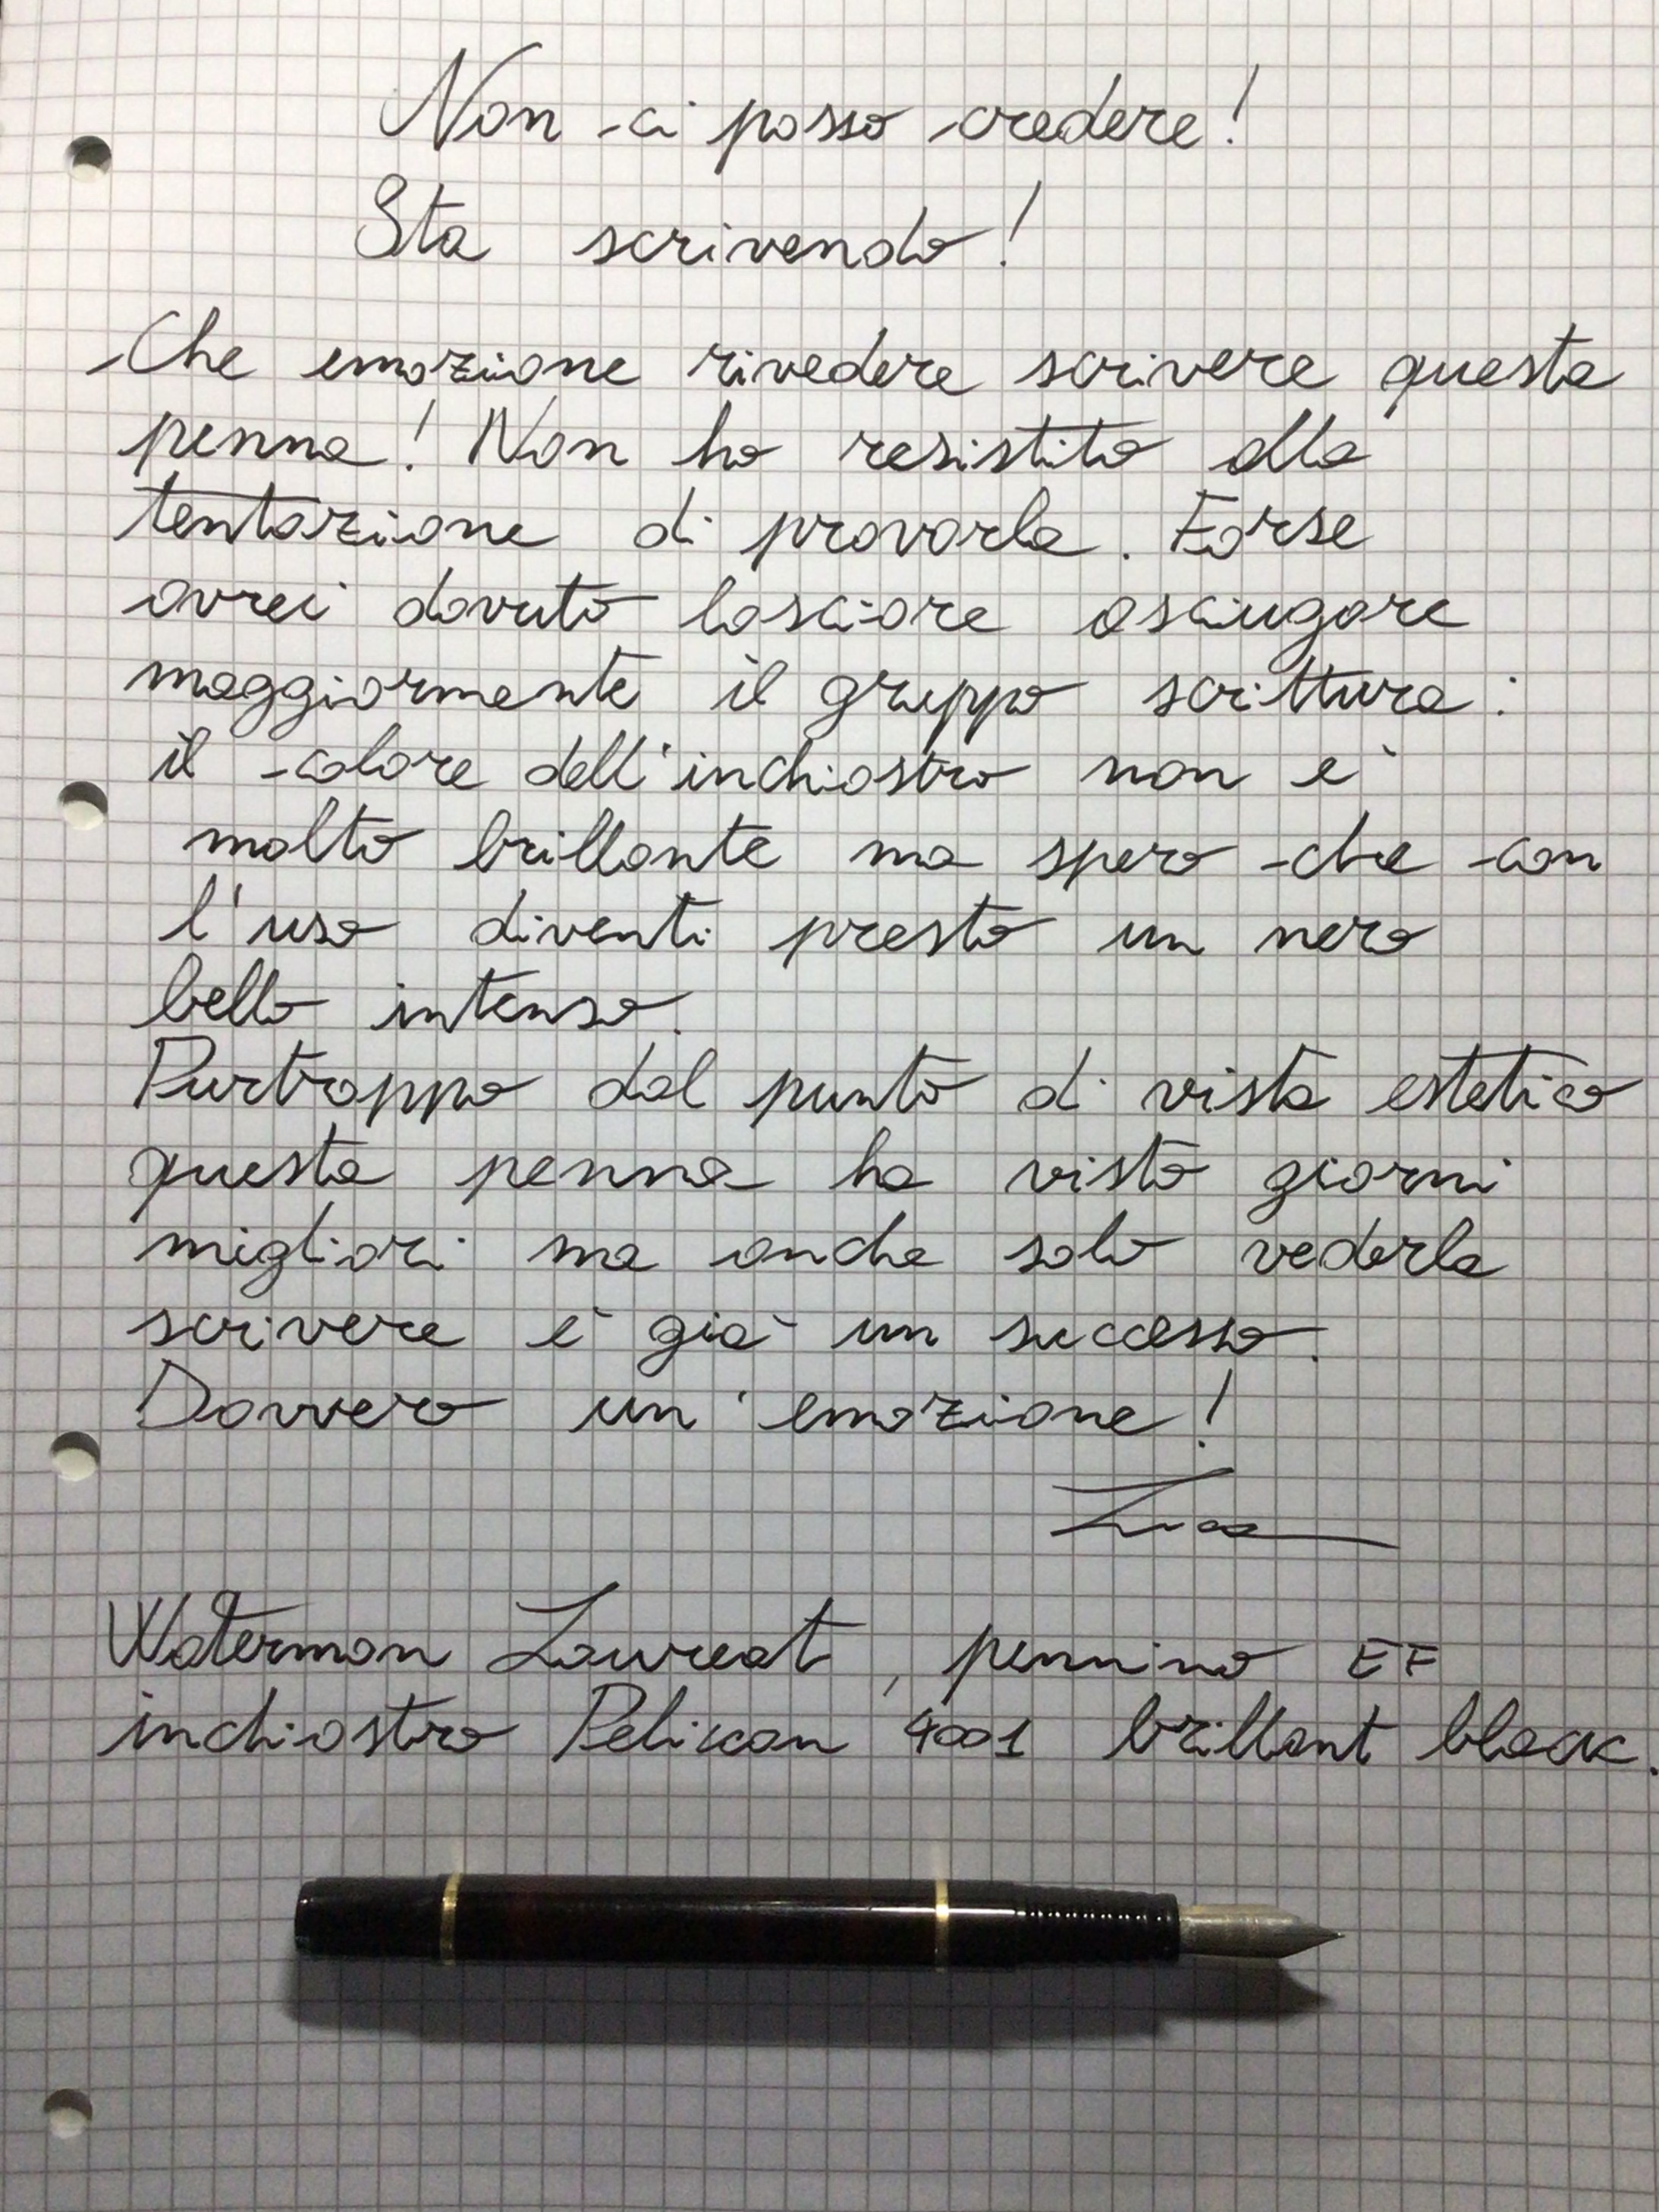 Non ci posso credere!
Sta scrivendo!
Che emozione rivedere scrivere questa
penna! Non ho resistito alla
tentazione di provarla. Forse
avrei dovuto lasciare asciugare
maggiormente il gruppo scrittura:
il colore dell'inchiostro non è
molto brillante ma spero che con
l'uso diventi presto un nero
bello intenso.
Purtroppo dal punto di vista estetico
questa penna ha visto giorni
migliori ma anche solo vederla
scrivere è già un successo.
Davvero un'emozione!
Luca
Waterman Laureat, pennino EF
inchiostro Pelikan 4001 brillant black.